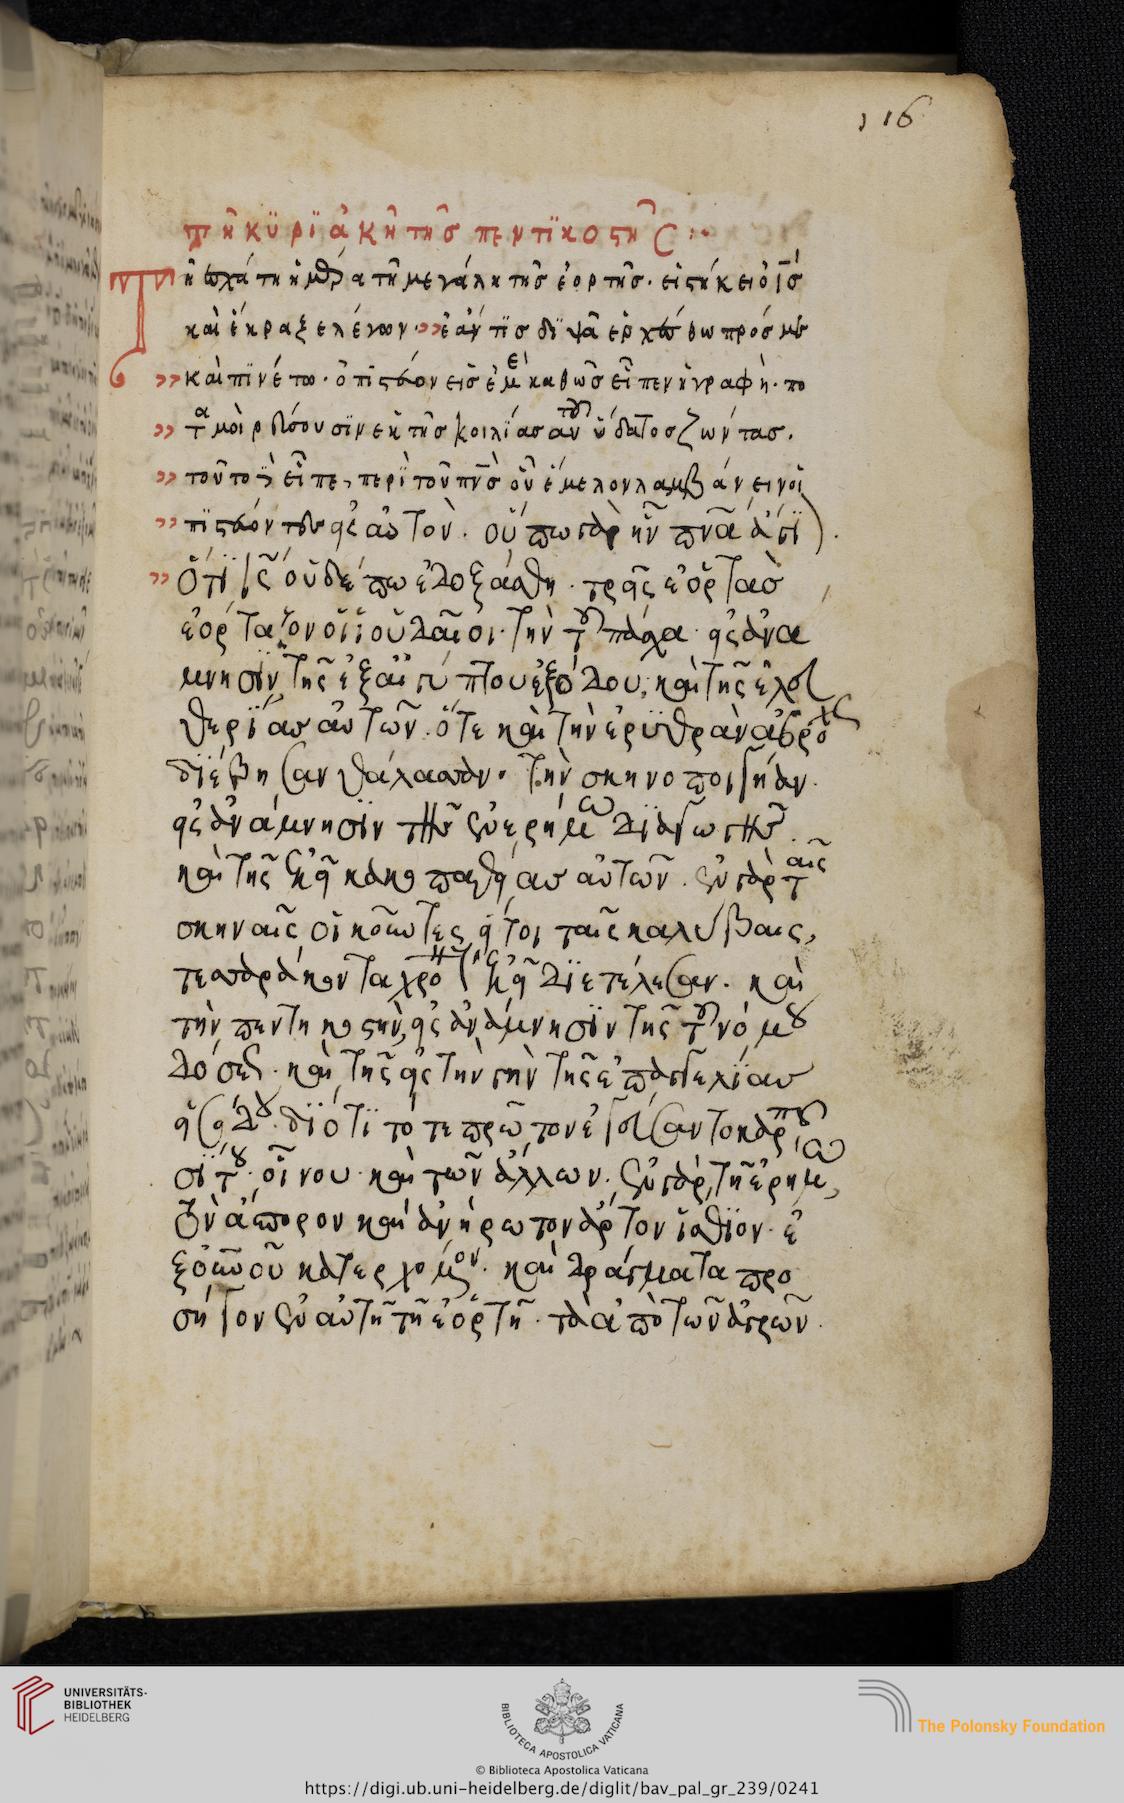 116
τῆ κϋρϊἀκῆ τῆσ πεντϊκοστῆς :·
Τῆ ἐσχάτη ἡμέρα τῆ μεγάλη τῆσ ἑορτῆσ· εἱστήκει ὁ ἰσ
καὶ ἔκραξε λέγων· ἐάν τϊσ δϊψᾶ ἐρχέσθω πρόσ με
καὶ πϊνέτω· ὁ πϊστεύων εἰσ ἐμὲ καθῶσ εἶπεν ἡ γραφὴ· πο
ταμοὶ ρεύσουσϊν ἐκ τῆσ κοιλίασ αὐτοῦ ὕδατοσ ζῶντασ.
τοῦτο δὲ εἶπε, περὶ τοῦ πνσ οὗ ἔμελον λαμβάνειν οἱ
πϊστεύοντες εἰς αὐτὸν. οὔπω γὰρ ἦν πνα ἅγι
ὅτϊ ις οὐδέπω ἐδοξάσθη· τρεῖς ἑορτὰσ
ἑόρταζον οἱ ἰουδαῖοι· τὴν τοῦ πάσχα· εἰς ἀνα
μνησϊν τῆς ἐξ αἰγύπτου ἐξόδου, καὶ τῆς ἐλευ
θερϊασ αὐτῶν· ὅτε καὶ τὴν ἐρϋθρὰν ἀβρόχως
διέβησαν θάλασσαν· τὴν σκηνοποιγήαν·
εἰς ἀνάμνησϊν τῆσ ἐν ἐρήμω δϊαγωγῆσ.
καὶ τῆς ἐκεῖ κακοπαθείασ αὐτῶν. ἐν γὰρ ταῖς
σκηναῖς οἰκοῦντες ἤτοι ταῖς καλύβαις,
τεσσαράκοντα χρό ἐκεῖ δϊετέλεσαν. καὶ
τὴν πεντηκοστὴν, εἰς ἀνάμνησϊν τῆς τοῦ νόμου
δόσεως· καὶ τῆς εἰς τὴν γῆν τῆς ἐπαγγελϊασ
εἰσόδου· διότϊ τότε πρῶτον ἐγεύσαντο καρποῦ
σίτου· οἴνου· καὶ τῶν ἄλλων. ἐν γὰρ τῆ ἐρήμω,
τὸν ἄσπορον καὶ ἀνήρωτον ἄρτον ἴσθϊον· ἐ
ξ οὐρανοῦ κατερχομενον· καὶ δράγματα προ
σῆγον ἐν αὐτῆ τῆ ἑορτῆ· τὰ ἀπὸ τῶν ἀγρῶν.
UNIVERSITÄTS-
BIBLIOTHEK
HEIDELBERG
BIBLIOTECA APOSTOLICA VATICANA
The Polonsky Foundation
© Biblioteca Apostolica Vaticana
https://digi.ub.uni-heidelberg.de/diglit/bav_pal_gr_239/0241